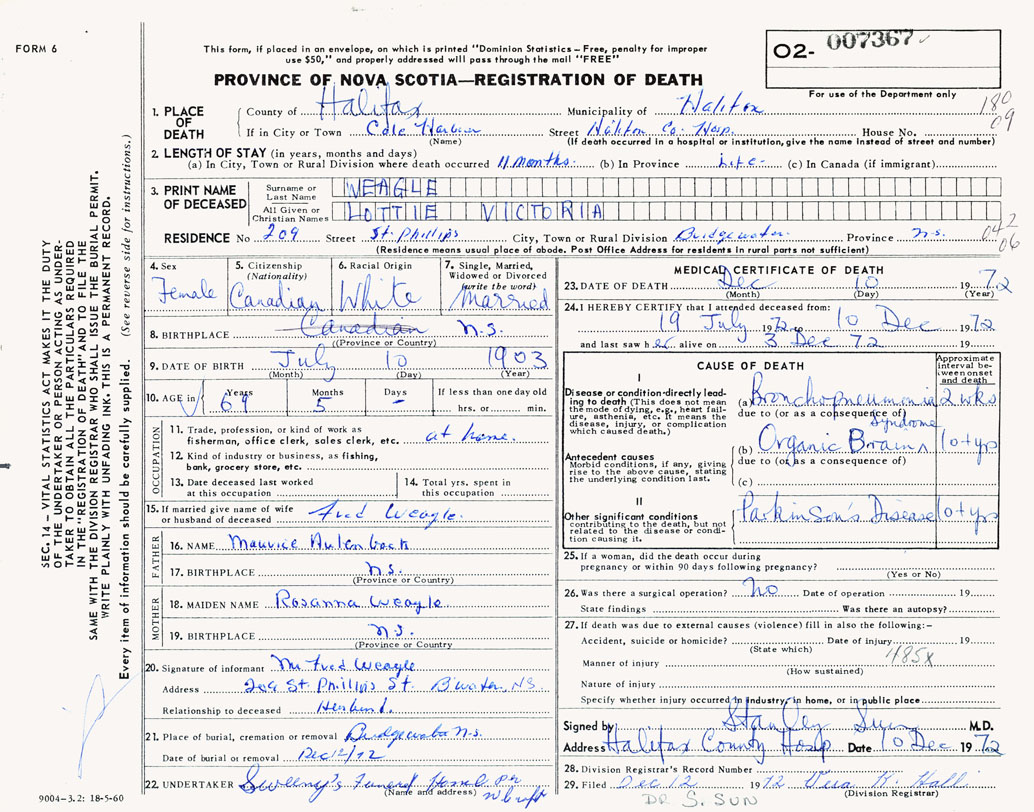 FORM 6
This form, if placed in an envelope, on which is printed "Dominion Statistics – Free, penalty for improper
use $50," and properly addressed will pass through the mail "FREE"
PROVINCE OF NOVA SCOTIA—REGISTRATION OF DEATH
02- 007367
For use of the Department only
180
09
1. PLACE OF DEATH
County of Halifax Municipality of Halifax
If in City or Town Cole Harbour Street Halifax Co. Hosp. House No.
(Name) (If death occurred in a hospital or institution, give the name instead of street and number)
2. LENGTH OF STAY (in years, months and days)
(a) In City, Town or Rural Division where death occurred 11 Months. (b) In Province Life (c) In Canada (if immigrant)
3. PRINT NAME OF DECEASED
Surname or Last Name WEAGLE
All Given or Christian Names LOTTIE VICTORIA
RESIDENCE No 209 Street St. Phillips City, Town or Rural Division Bridgewater Province N.S.
042
06
(Residence means usual place of abode. Post Office Address for residents in rural parts not sufficient)
4. Sex Female
5. Citizenship (Nationality) Canadian
6. Racial Origin White
7. Single, Married, Widowed or Divorced (write the word) Married
8. BIRTHPLACE Canadian N.S.
(Province or Country)
9. DATE OF BIRTH July 10 1903
(Month) (Day) (Year)
10. AGE in Years 69 Months 5 Days – If less than one day hrs. or min.
OCCUPATION
11. Trade, profession, or kind of work as
fisherman, office clerk, sales clerk, etc. at home.
12. Kind of industry or business, as fishing,
bank, grocery store, etc.
13. Date deceased last worked
at this occupation
14. Total yrs. spent in
this occupation
15. If married give name of wife
or husband of deceased Fred Weagle.
FATHER
16. NAME Maurice
17. BIRTHPLACE N.S.
(Province or Country)
MOTHER
18. MAIDEN NAME Rosanna Weagle
19. BIRTHPLACE N.S.
(Province or Country)
20. Signature of informant Mr Fred Weagle
Address 209 St. Phillips St. B'water, N.S.
Relationship to deceased Husband.
21. Place of burial, cremation or removal Bridgewater N.S.
Date of burial or removal Dec 12/72
22. UNDERTAKER Sweeny's Funeral Home
(Name and address)
9004–3.2: 18-5-60
MEDICAL CERTIFICATE OF DEATH
23. DATE OF DEATH Dec 10 1972
(Month) (Day) (Year)
24. I HEREBY CERTIFY that I attended deceased from:
19 July 1972 to 10 Dec 1972
and last saw her alive on 3 Dec 72 19
CAUSE OF DEATH
Approximate interval between onset and death
I
Disease or condition directly leading to death (This does not mean the mode of dying, e.g., heart failure, asthenia, etc. It means the disease, injury, or complication which caused death.)
(a) Bronchopneumonia 2 wks
due to (or as a consequence of)
Syndrome
(b) Organic Brain 10+ yrs
due to (or as a consequence of)
(c)
Antecedent causes
Morbid conditions, if any, giving
rise to the above cause, stating
the underlying condition last.
II
Other significant conditions
contributing to the death, but not
related to the disease or condition causing it.
Parkinson's Disease 10+ yrs
25. If a woman, did the death occur during
pregnancy or within 90 days following pregnancy?
(Yes or No)
26. Was there a surgical operation? No Date of operation 19
State findings Was there an autopsy?
27. If death was due to external causes (violence) fill in also the following:–
Accident, suicide or homicide? Date of injury 19
(State which)
485X
Manner of injury
(How sustained)
Nature of injury
Specify whether injury occurred in industry, in home, or in public place
Signed by Stanley Sun M.D.
Address Halifax County Hosp Date 10 Dec 1972
28. Division Registrar's Record Number
29. Filed Dec 12 1972 Vera K. Hall
(Division Registrar)
DR. S. SUN
SEC. 14 – VITAL STATISTICS ACT MAKES IT THE DUTY
OF THE UNDERTAKER OR PERSON ACTING AS UNDERTAKER TO OBTAIN ALL THE PARTICULARS REQUIRED
IN THE "REGISTRATION OF DEATH" AND TO FILE THE
SAME WITH THE DIVISION REGISTRAR WHO SHALL ISSUE THE BURIAL PERMIT.
WRITE PLAINLY WITH UNFADING INK. THIS IS A PERMANENT RECORD.
Every item of information should be carefully supplied. (See reverse side for instructions.)